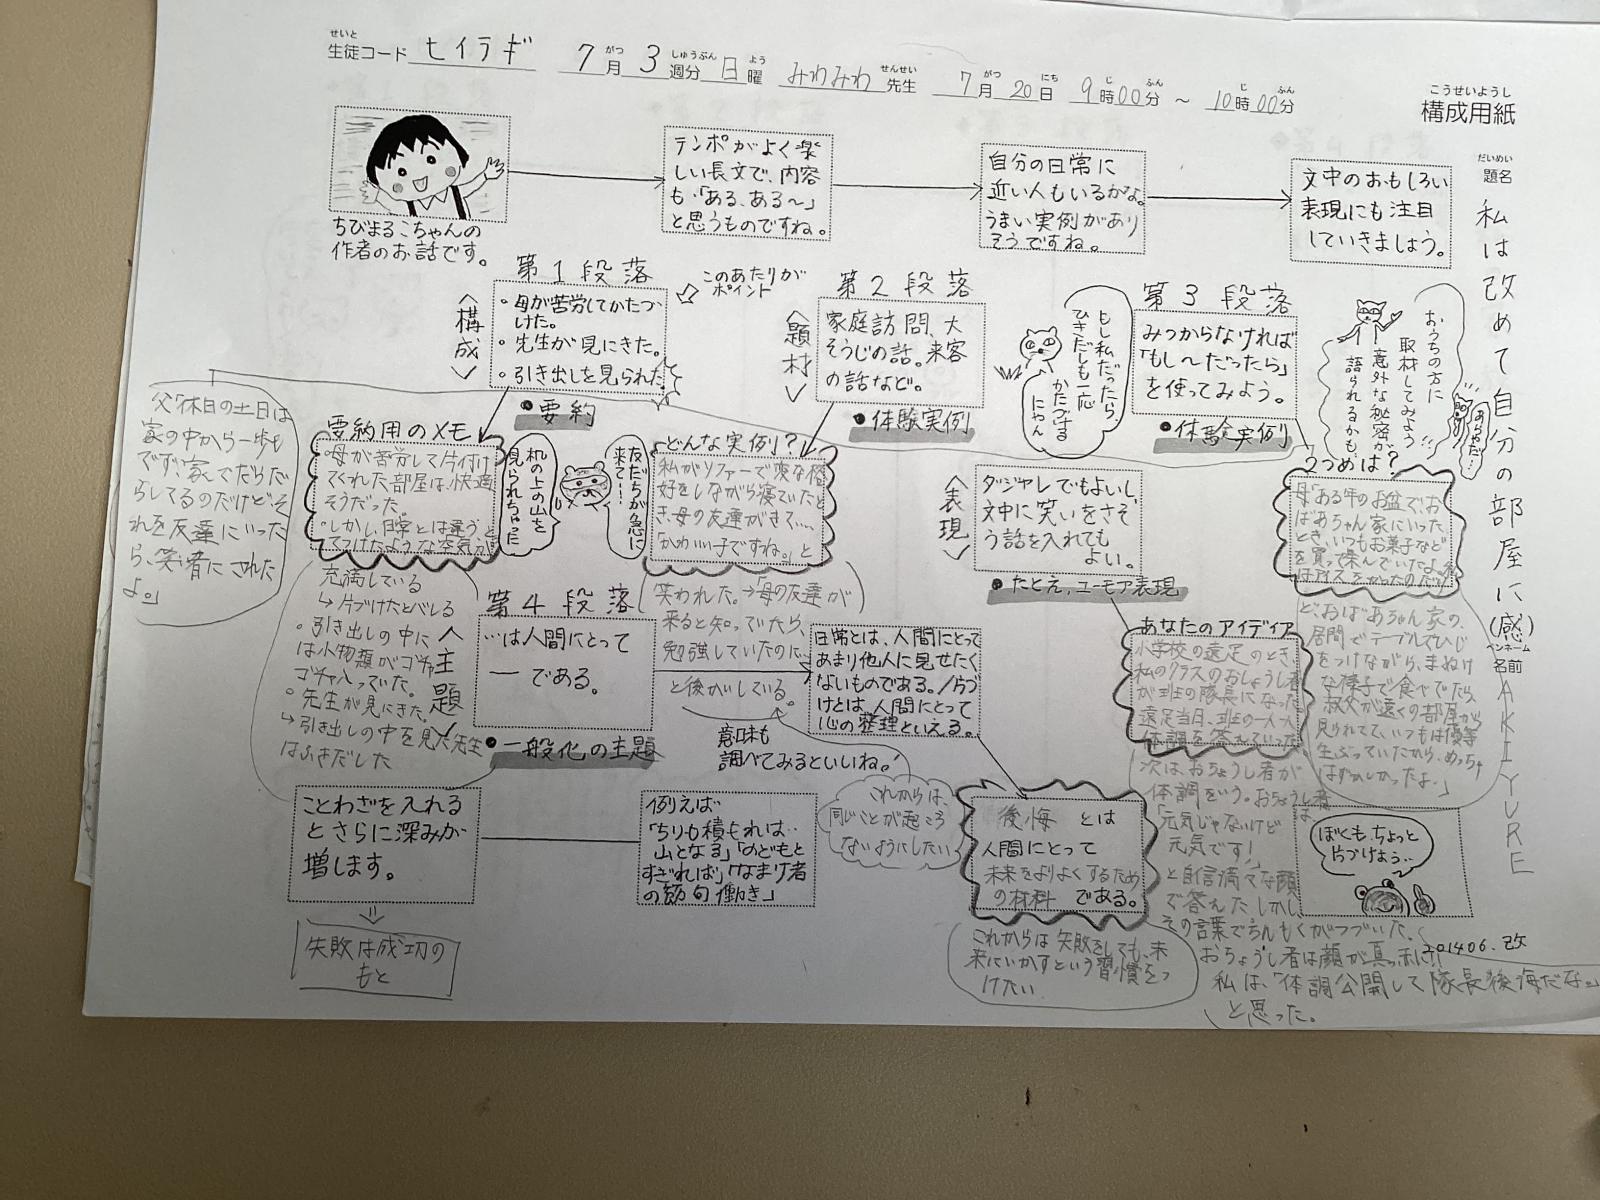 せいと
生徒コード ヒイラギ 7月 3週分 日曜 みわみわ先生 7月20日 9時00分 ~ 10時00分
こうせいようし
構成用紙
だいめい
題名
私は改めて自分の部屋に(感)
ペンネーム
名前
AKIYURE
ちびまるこちゃんの
作者のお話です。
テンポがよく楽
しい長文で、内容
も「ある、ある~」
と思うものですね。
自分の日常に
近い人もいるかな。
うまい実例があり
そうですね。
文中のおもしろい
表現にも注目
していきましょう。
第1段落
このあたりが
ポイント
<構成>
・母が苦労してかたづ
けた。
・先生が見にきた。
・引き出しを見られた。
●要約
第2段落
<題材>
家庭訪問、大
そうじの話。来客
の話など。
●体験実例
もし私だったら、
ひきだしも一応
かたづける
にゃん
第3段落
みつからなければ
「もし~だったら」
を使ってみよう。
●体験実例
おうちの方に
取材してみよう
意外な秘密が
語られるかも
父「休日の土日は
家の中から一歩も
でず、家でだらだ
らしてるのだけど、そ
れを友達にいった
ら、笑い者にされた
よ。」
要納用のメモ
・母が苦労して片付け
てくれた部屋は、快適
そうだった。
・しかし、日常とは違う、と
ってつけたような空気が
充満している
↳片づけたとバレる
・引き出しの中に
は小物類がゴチャ
ゴチャ入っていた。
・先生が見にきた。
↳引き出しの中を見た先生
はふきだした
机の上の山を
見られちゃった
友だちが急に
来て!
どんな実例?
私がソファーで変な格
好をしながら寝ていたと
き、母の友達がきて、、、
「かわいい子ですね。」と
笑われた。→「母の友達が
来ると知っていたら、
勉強していたのに、」
と後かいしている。
<表現>
ダジャレでもよいし、
文中に笑いをさそ
う話を入れても
よい。
●たとえ、ユーモア表現
2つめは?
母「ある年のお盆で、お
ばあちゃん家にいった
とき、いつもお菓子など
を買って来んでいたよ。私
はアイスをかったのだけ
ど、おばあちゃん家の、
居間でテーブルでひじ
をつけながら、まぬけ
な様子で食べてたら
叔父が遠くの部屋から
見られてて、いつもは優等
生ぶっていたから、めっちゃ
はずかしかったよ。」
第4段落
<主題>
…は人間にとって
―である。
●一般化の主題
日常とは、人間にとって
あまり他人に見せたく
ないものである。/片づ
けとは、人間にとって
心の整理といえる。
意味も
調べてみるといいね。
あなたのアイディア
小学校の遠足のとき、
私のクラスのおしょうし者
が班の隊長になった
遠足当日、班の一人一人
体調を答えていった。
次は、おちょうし者が
体調をいう。おちょうし者は
「元気じゃないけど
元気です!」
と自信満々な顔
で答えた。しかし、
その言葉でちんもくがつづいた。
おちょうし者は顔が真っ赤に!
私は、「体調公開して隊長後悔だな。」
と思った。
ことわざを入れる
とさらに深みが
増します。
失敗は成功の
もと
例えば
「ちりも積もれば‥
山となる」「のどもと
すぎれば」「なまけ者
の節句働き」
これからは、
同じことが起こら
ないようにしたい
後悔 とは
人間にとって
未来をよりよくするため
の材料 である。
これからは失敗をしても、未
来にいかすという習慣をつ
けたい
ぼくも、ちょっと
片づけよう‥
201406.改